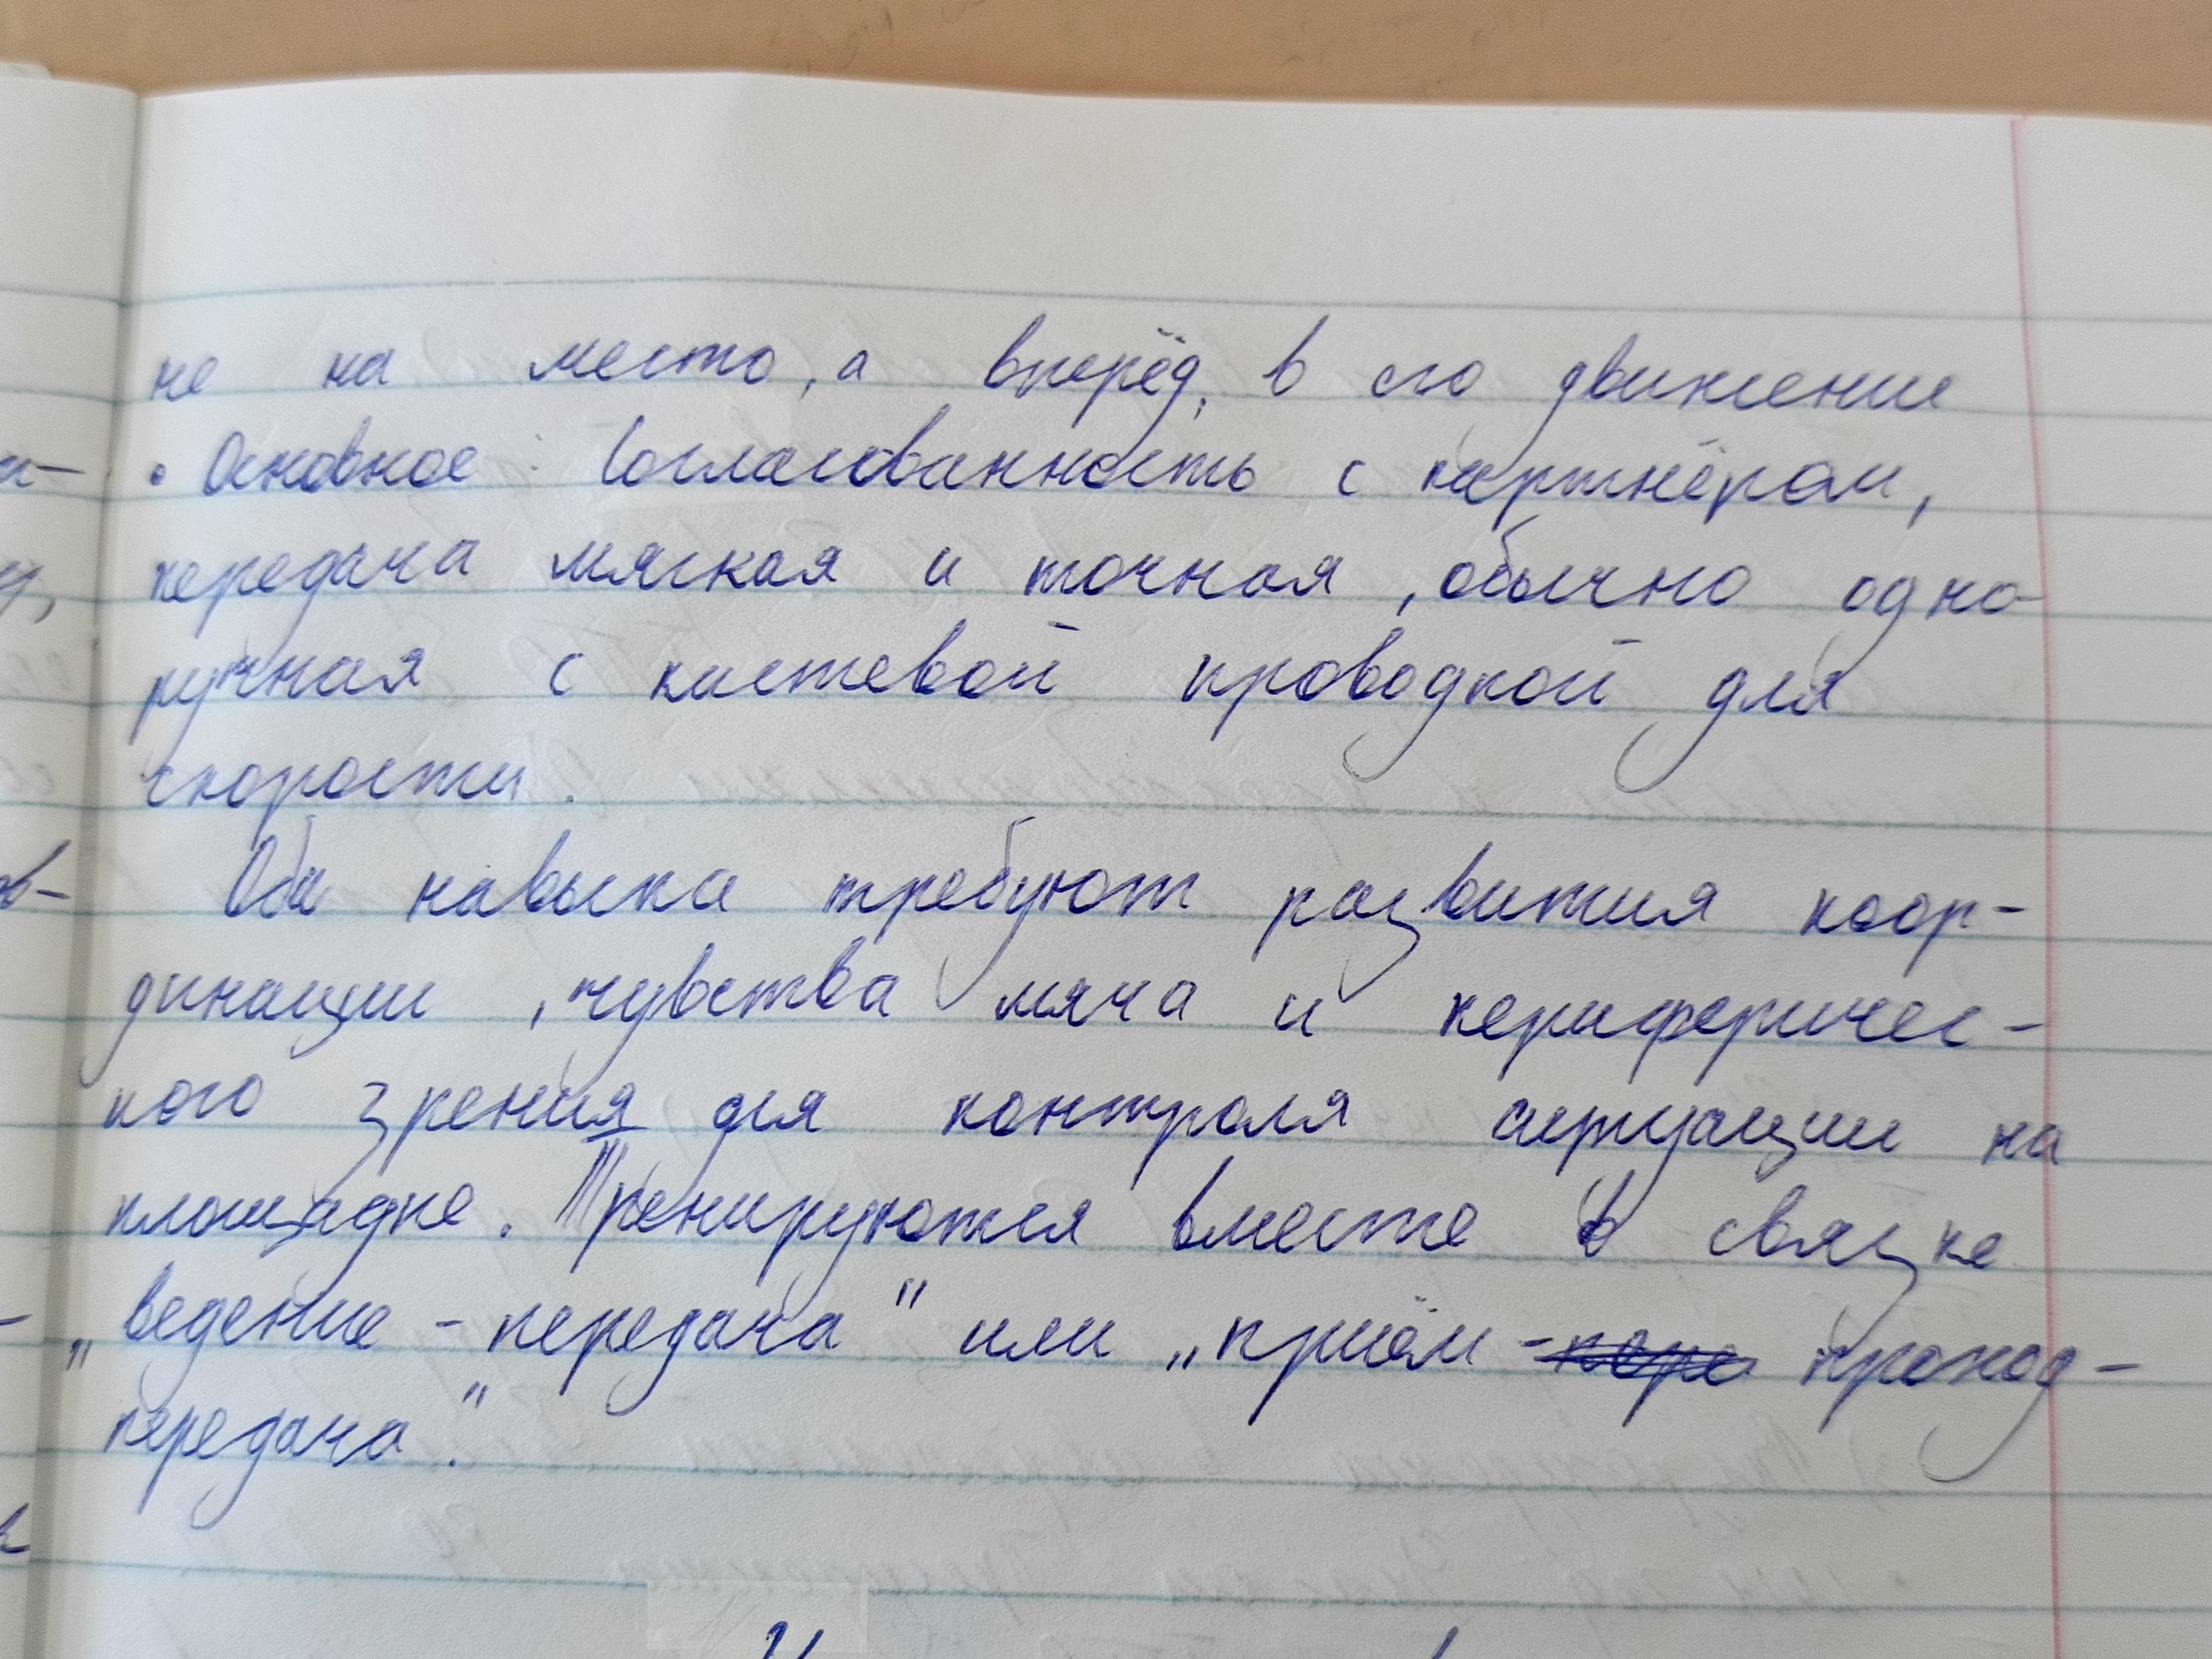 не на место, а вперёд, в его движение
• Основное: Согласованность с партнёром,
передача мягкая и точная, обычно одно-
ручная с кистевой проводкой для
скорости.
Оба навыка требуют развития коор-
динации, чувства мяча и периферичес-
кого зрения для контроля ситуации на
площадке. Тренируются вместе в связке
„ведение - передача" или „приём - проход-
передача."